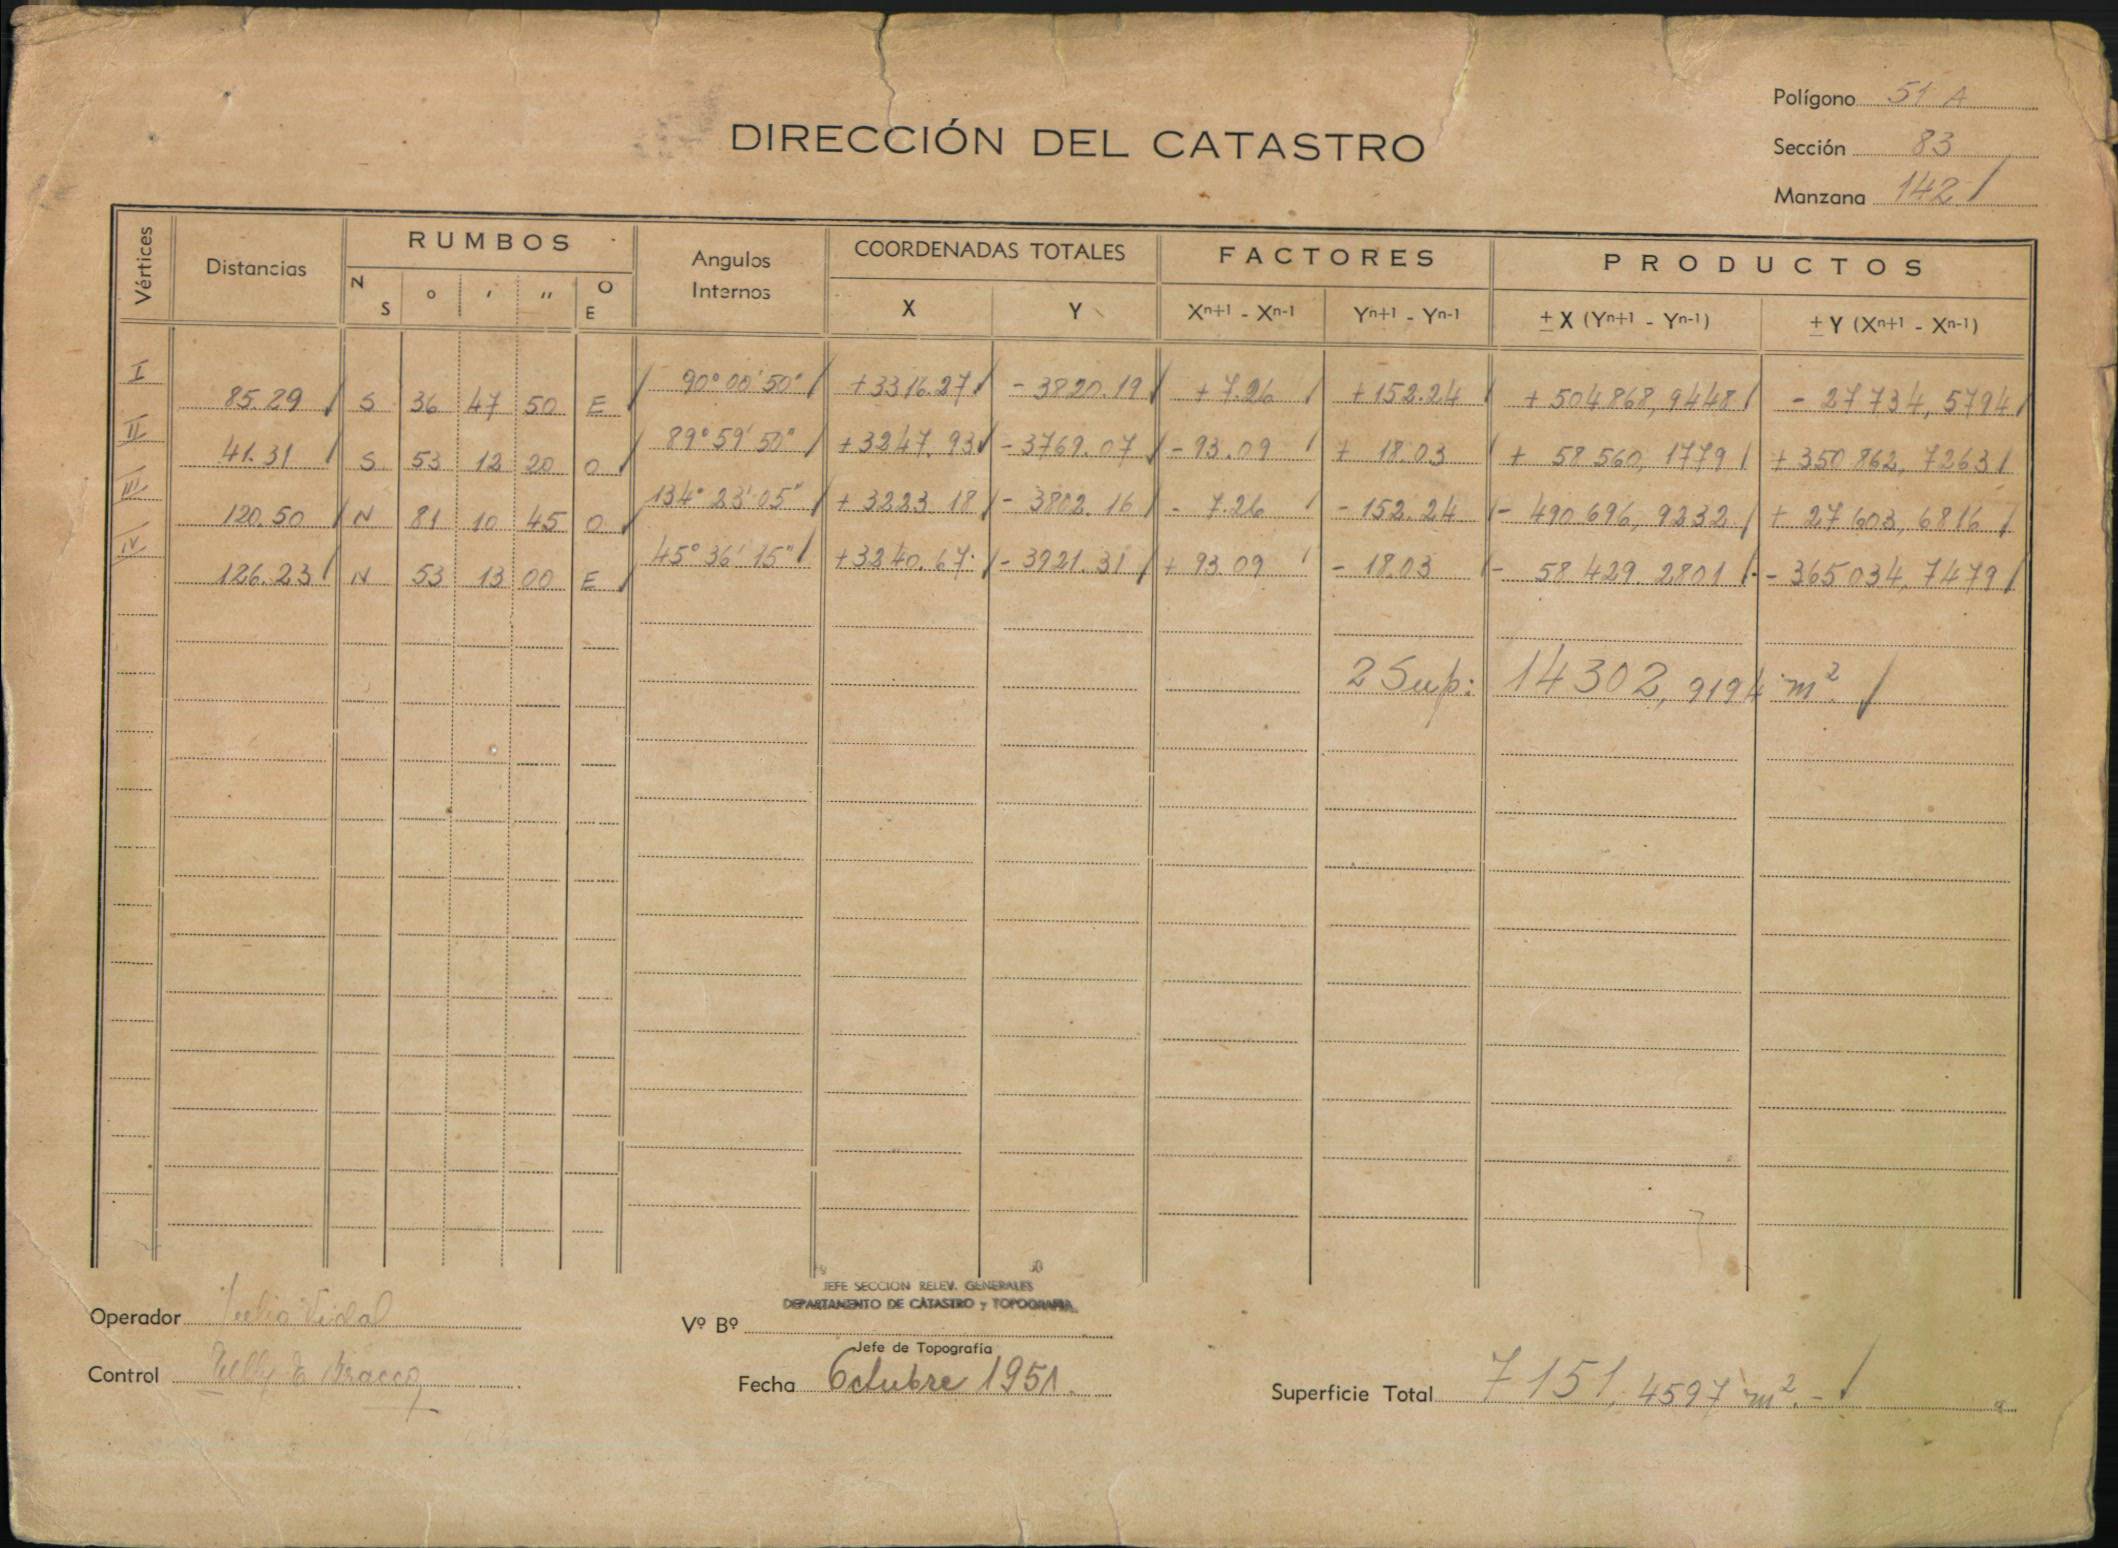 Polígono 51 A
DIRECCIÓN DEL CATASTRO
Sección 83
Manzana 142
Vértices Distancias RUMBOS Angulos Internos COORDENADAS TOTALES FACTORES PRODUCTOS
N S ° ' " O E X Y Xn+1 - Xn-1 Yn+1 - Yn-1 ± X (Yn+1 - Yn-1) ± Y (Xn+1 - Xn-1)
I 85.29 S 36 47 50 E 90° 00' 50" +3316.27 - 3820.19 + 7.26 + 152.24 + 504868,9448 - 27734,5794
II 41.31 S 53 12 20 O 89° 59' 50" +3247.93 - 3769.07 - 93.09 + 18.03 + 58560,1779 + 350862,7263
III 120.50 N 81 10 45 O 134° 23' 05" + 3223.18 - 3802.16 - 7.26 - 152.24 - 490696,9232 + 27603,6816
IV 126.23 N 53 13 00 E 45° 36' 15" +3240.67 - 3921.31 + 93.09 - 18.03 - 58429.2801 - 365034,7479
2 Sup: 14302,9194 m²
JEFE SECCION RELEV. GENERALES
DEPARTAMENTO DE CATASTRO y TOPOGRAFIA
Operador Julio Vidal
Vº Bº
Jefe de Topografía
Control Nelly E Bracco
Fecha Octubre 1951.
Superficie Total 7151,4597 m².-